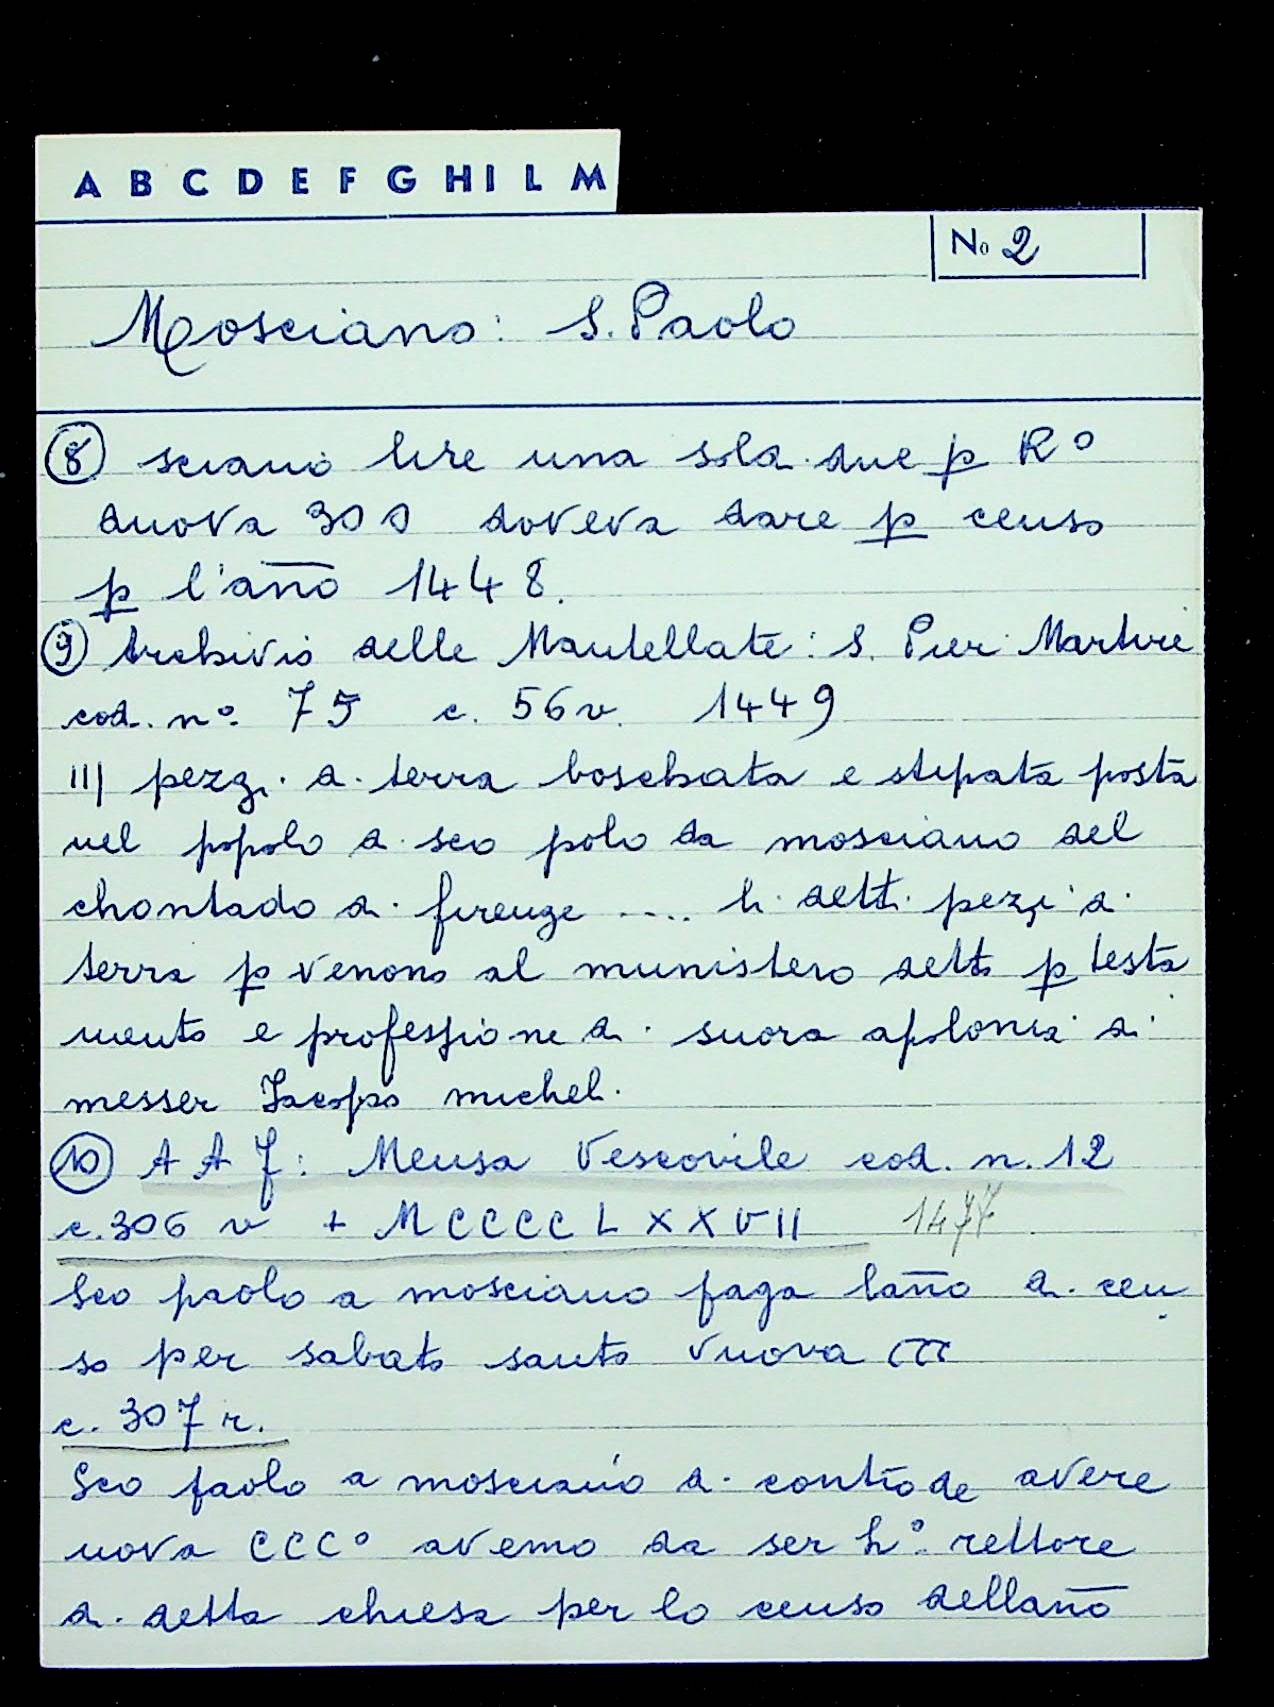 A B C D E F G H I L M
No 2
Mosciano: S. Paolo
8 sciano lire una sola due p R°
duova 300 doveva dare p censo
p l'año 1448.
9 Archivio delle Mantellate: S. Pier Martire
cod. n°. 75 c. 56 v. 1449
III pezzi d. terra boschata e stipata posta
nel popolo d. sco polo da mosciano del
chontado d. firenze .... li detti pezi d.
terra p venono al munistero detto p testa
mento e professione d. suora apolonia d.
messer Jacopo michel.
10 A A F: Mensa Vescovile cod. n. 12
c. 306 v + M C C C C L X X V I I 1477
Sco paolo a mosciano paga laño d. cen
so per sabato santo vuova CCC
c. 307 r.
Sco paolo a mosciano d. contro de avere
uova CCC° avemo da ser h°. rettore
d. detta chiesa per lo censo dellaño